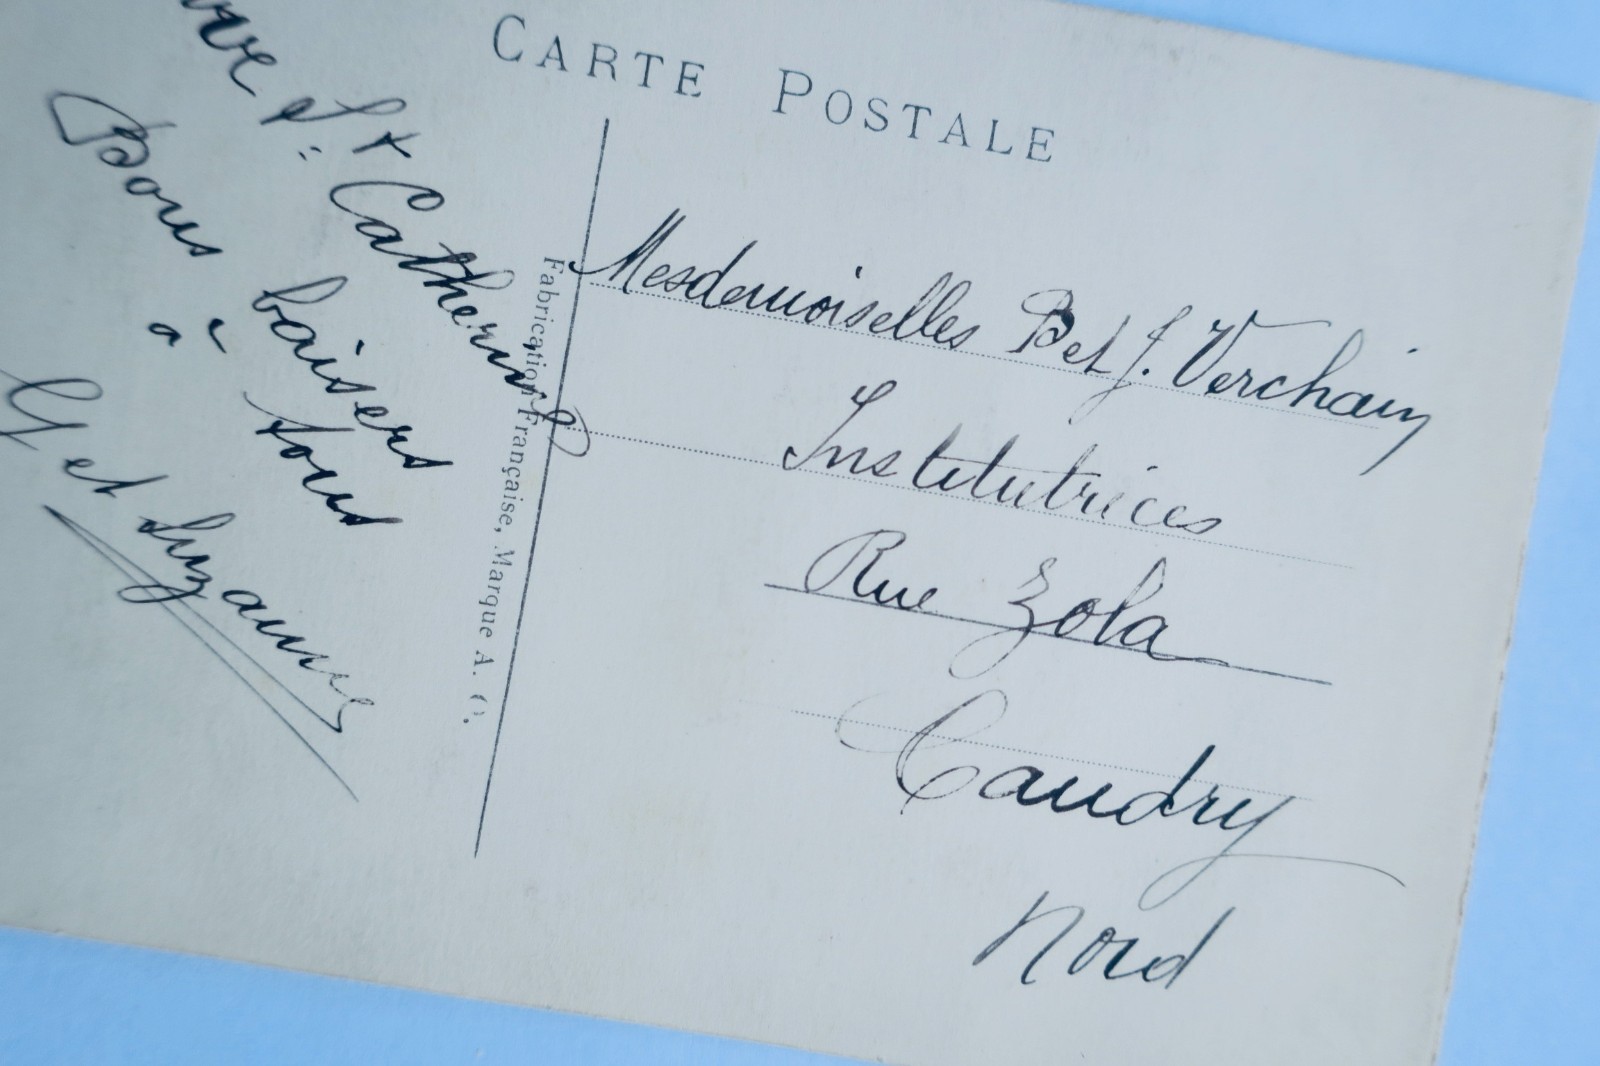 CARTE POSTALE
Ste Catherine
Bons baisers
à tous
G et Suzanne
Fabrication Française, Marque A. C.
Mesdemoiselles B et J. Verchain
Institutrices
Rue Zola
Caudry
Nord